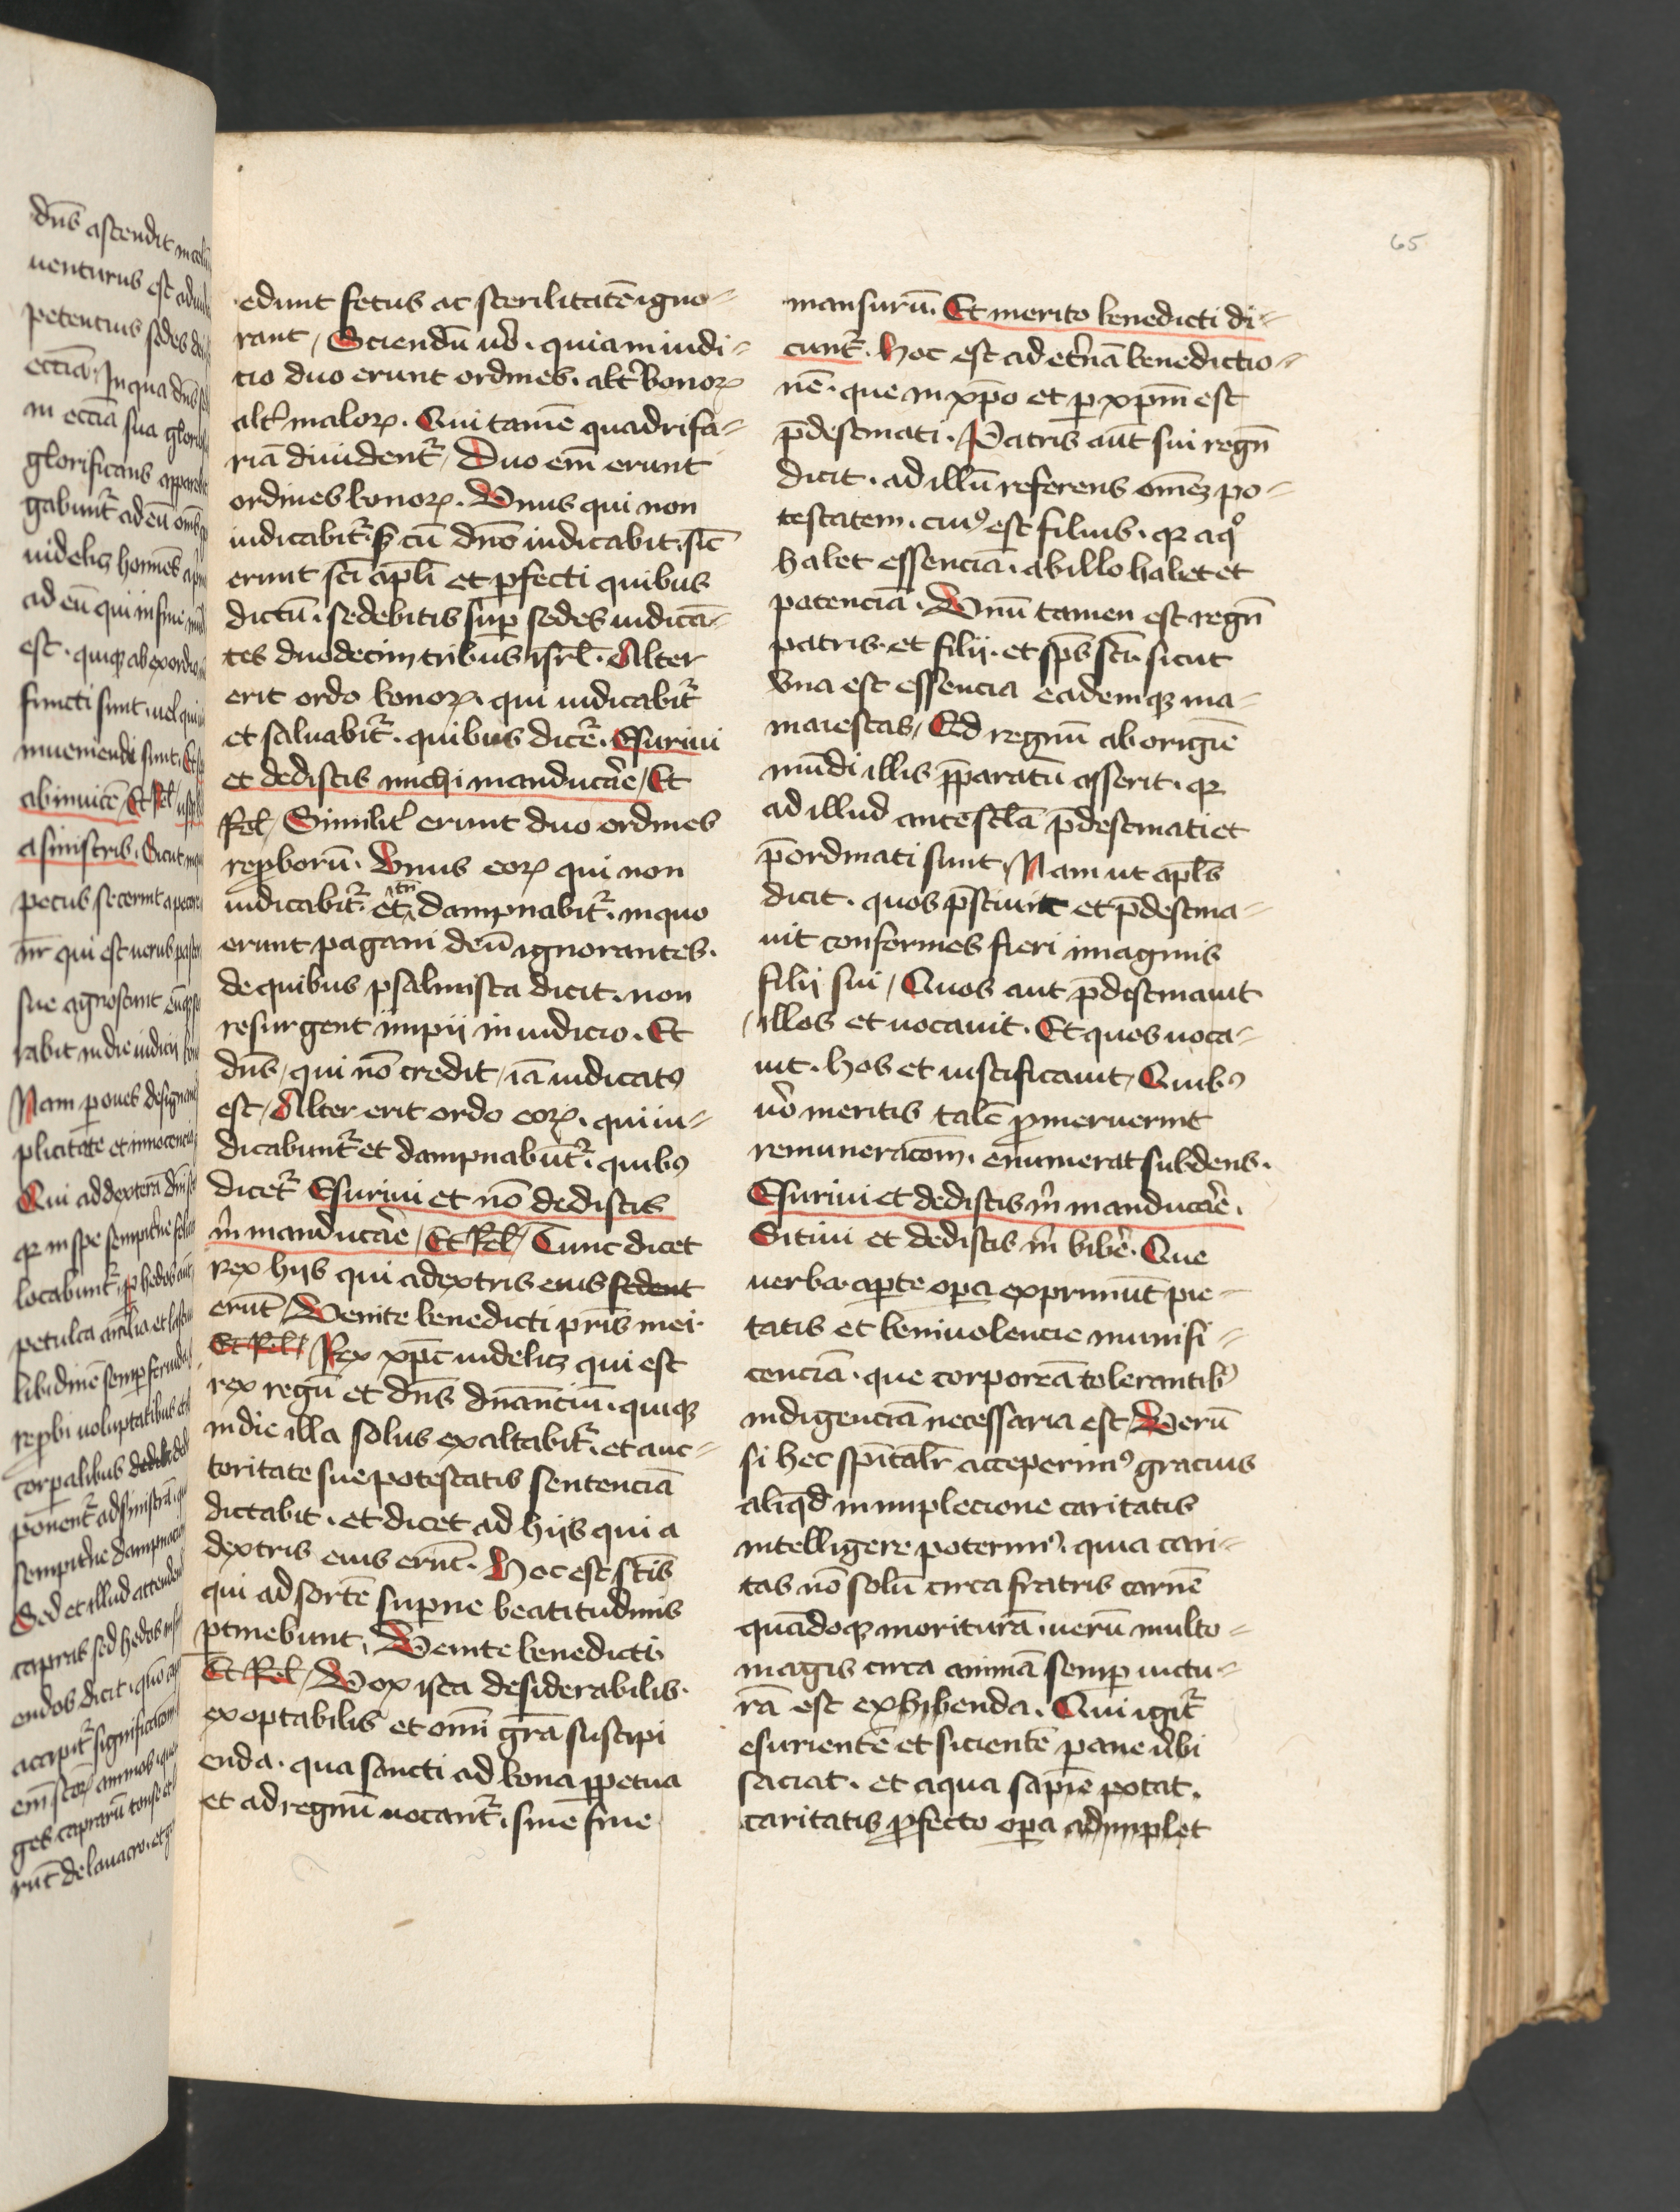 65
edunt fetus ac sterilitatē igno-
rant / Sciendū u͛o . quia in iudi-
cio duo erunt ordines . alt͛ bonoꝝ
alt͛ maloꝝ . Qui tamē quadrifa-
riā diuident͛ / Duo em̄ erunt
ordines bonoꝝ . Vnus qui non
iudicabit͛ . sꝫ cū dn̄o iudicabit . sic̄
erunt sc̄i ap̄li et ꝑfecti quibus
dictū . sedebitis suꝑ sedes iudicā-
tes duodecim tribus isrl̄ . Alter
erit ordo bonoꝝ . qui iudicabit͛
et saluabit͛ . quibus dicet͛ . Esuriui
et dedistis michi manducare / Et
Rel̄ / Similit͛ erunt duo ordines
reꝓborū . Vnus eoꝝ qui non
iudicabit͛ . et tn̄ dampnabit͛ . in quo
erunt pagani deū ignorantes .
de quibus psalmista dicit . non
resurgent impii in iudicio . Et
dn̄s / qui nō credit / iā iudicatꝰ
est / Alter erit ordo eoꝝ . qui iu-
dicabunt͛ et dampnabūt͛ . quibꝰ
dicet͛ Esuriui et nō dedistis
m̄ manducare / Et Rel̄ / Tunc dicet
rex hijs qui a dextris eius sedent
erūt / Venite benedicti pr̄is mei .
Et Rel̄ / Rex xp̄c uidelicꝫ qui est
rex regū et dn̄s dn̄anciū . quiqꝫ
in die illa solus exaltabit͛ . et auc-
toritate sue potestatis sentenciā
dictabit . et dicet ad hijs qui a
dextris eius erūt . Hoc est sc̄tis
qui ad sortē suꝑne beatitudinis
ꝑtinebunt . Venite benedicti
Et Rel̄ / Vox ista desiderabilis .
exoptabilis et om̄i gr̄a suscipi
enda . qua sancti ad bona ꝑpetua
et ad regnū uocant͛ . sine fine
mansurū . Et merito benedicti di-
cunt͛ . Hoc est ad et͛nā benedictio-
nē . que in xp̄o et ꝑ xp̄m est
p̄destinati . Patris aūt sui regn̄
dicit . ad illū referens om̄eꝫ po-
testatem . cuiꝰ est filius . qꝛ a qͦ
habet essenciā . ab illo habet et
potenciā . Vnū tamen est regn̄
patris . et filii . et sp̄s sc̄i . sicut
vna est essencia eademqꝫ ma-
maiestas / Ed regnū ab origīe
mūdi illis p̄paratū asserit . qꝛ
ad illud ante sc̄la p̄destinati et
p̄ordinati sunt / Nam ut ap̄ls
dicit . quos p̄sciuit et p̄destina-
uit conformes fieri imaginis
filii sui / Quos aut p̄destinauit
/ illos et uocauit . Et quos uoca-
uit . hos et iustificauit / Quibꝰ
u͛o meritis talē ꝓmeruerint
remuneracōm . enumerat subdens .
Esuriui et dedistis m̄ manducare .
Sitiui et dedistis m̄ bibe͛ . Que
uerba aꝑte oꝑa exprimūt pie-
tatis et beniuolencie munifi-
cenciā . que corporeā tolerantibꝰ
indigenciā necessaria est / Verū
si hec sp̄italr̄ acceperimꝰ gracius
aliqd in implecione caritatis
intelligere poterimꝰ . quia cari-
tas nō solū circa fratris carnē
quādoqꝫ moriturā . uerū multo-
magis circa animā semꝑ uictu-
rā est exhibenda . Qui igit͛
esurientē et sicientē pane u͛bi
saciat . et aqua sapīe potat .
caritatis ꝓfecto oꝑa adimplet